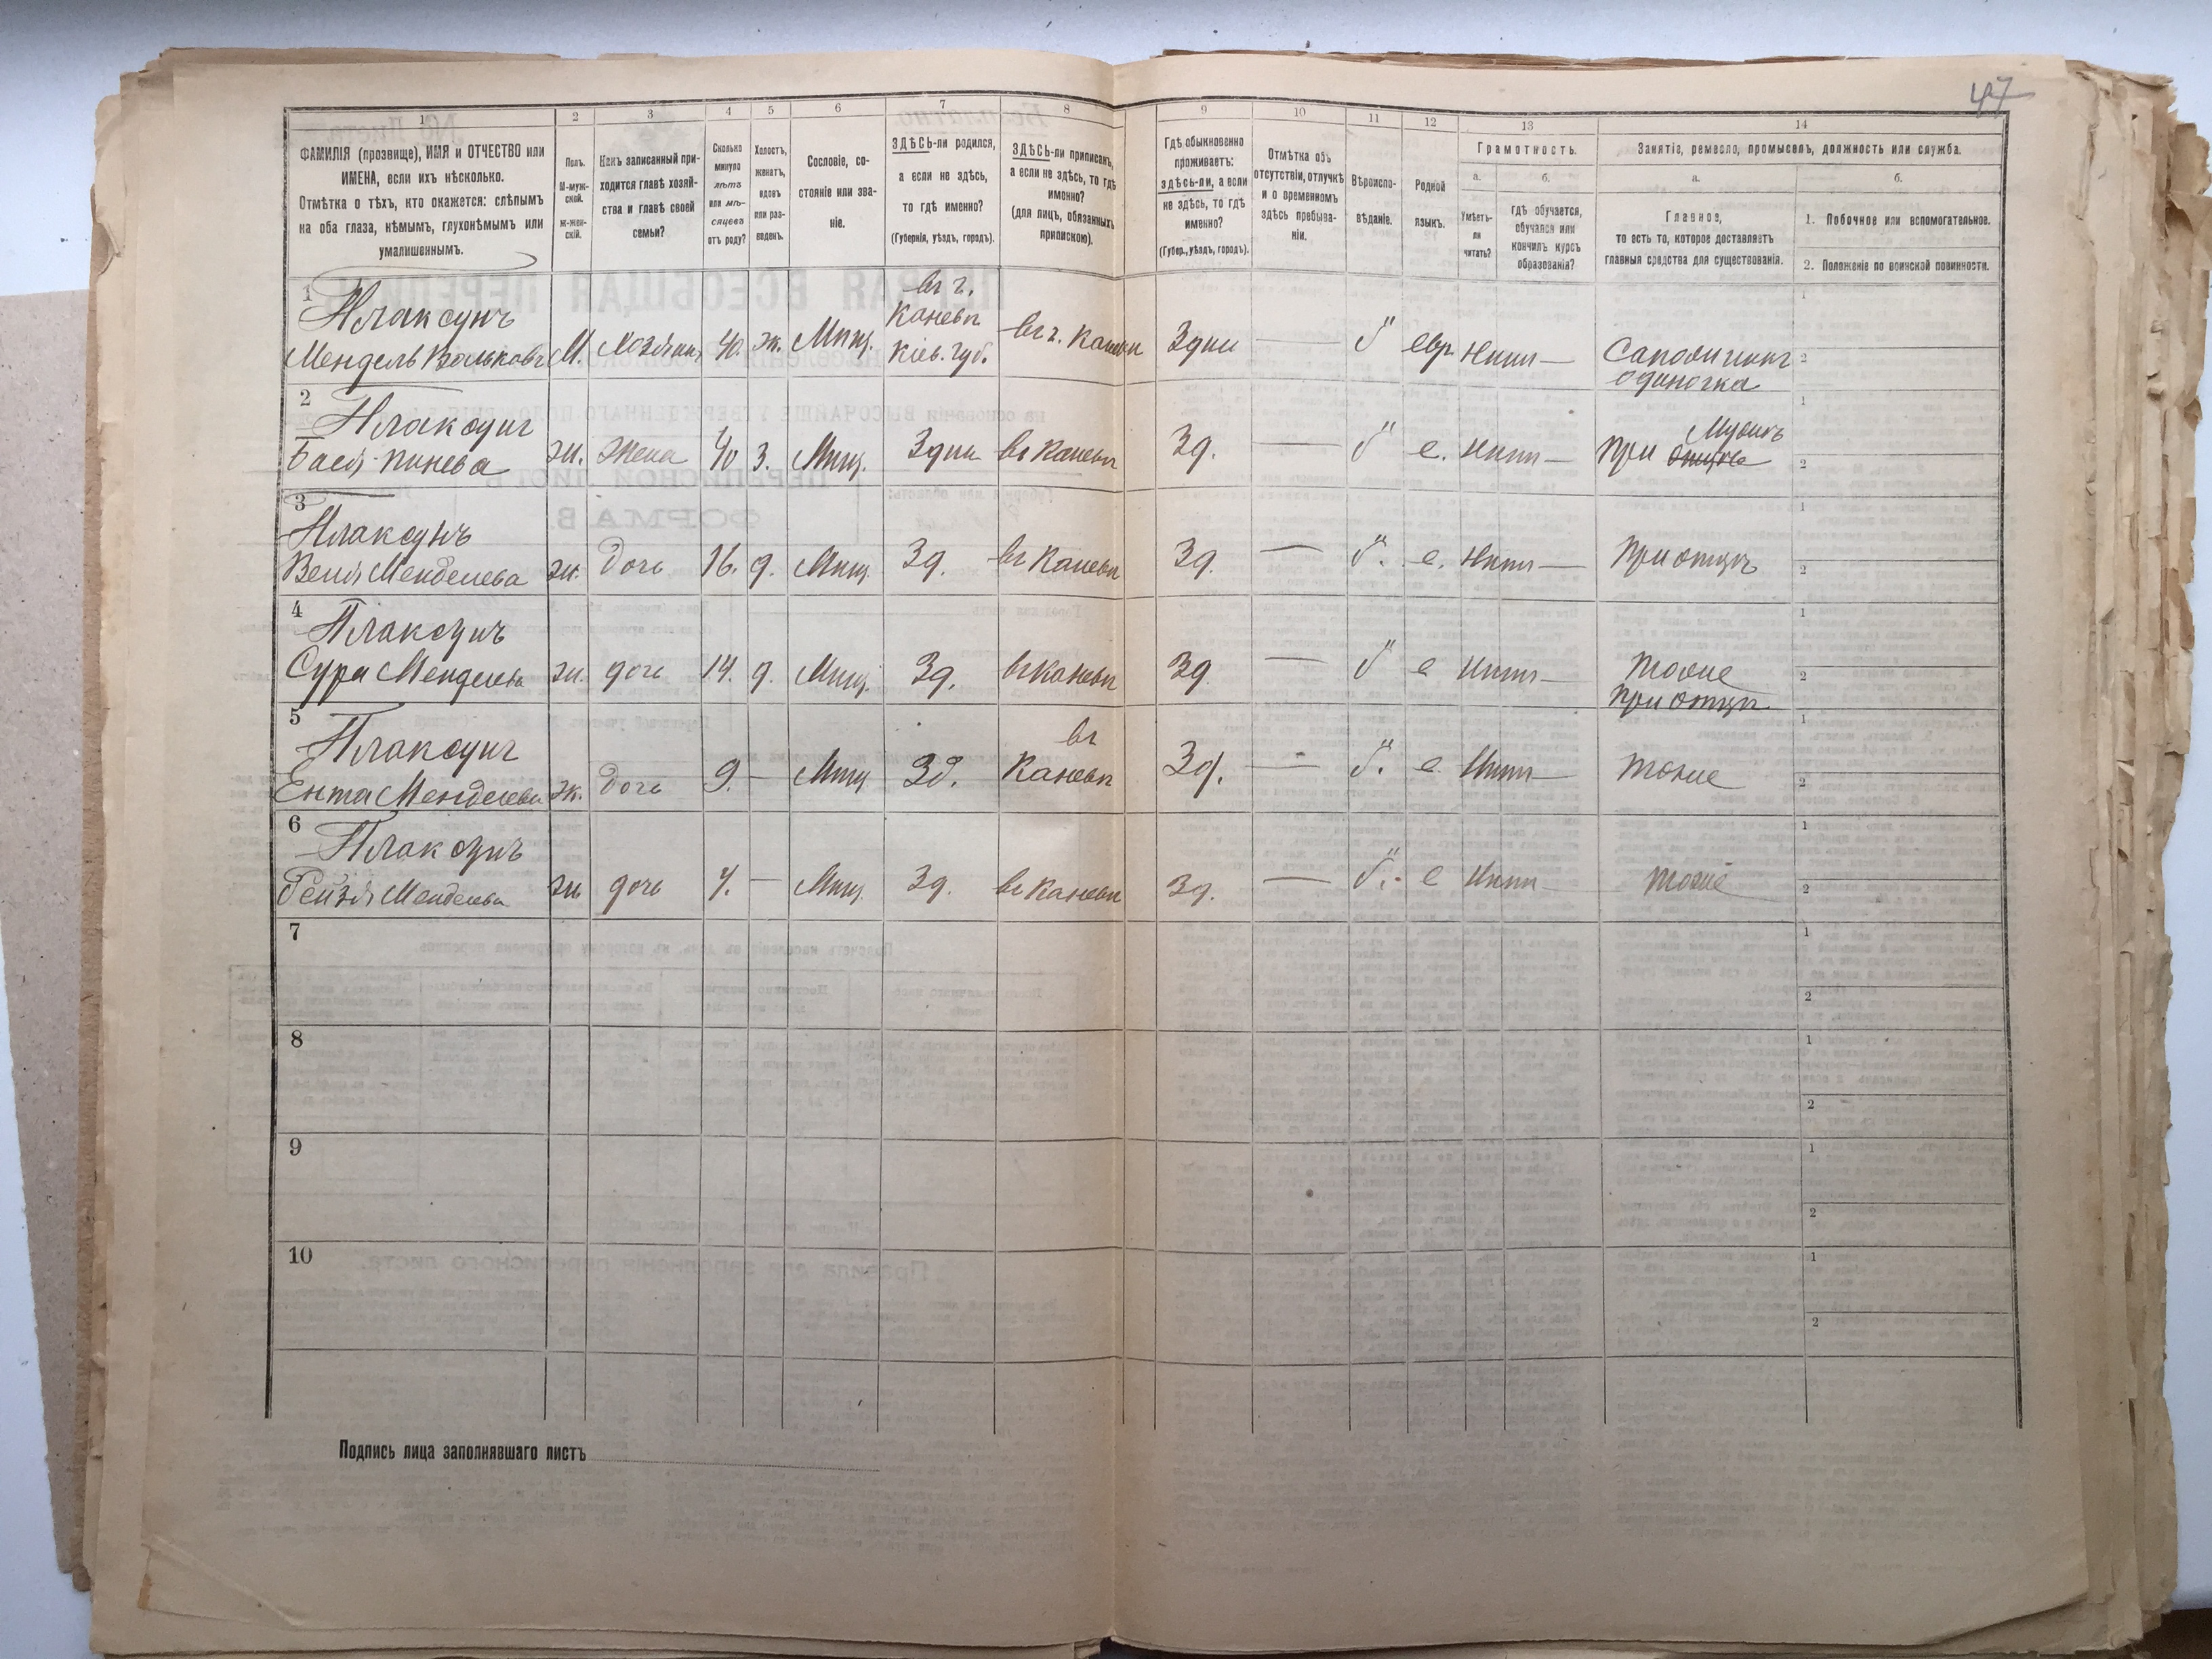 47
1
ФАМИЛІЯ (прозвище), ИМЯ и ОТЧЕСТВО или
ИМЕНА, если ихъ нѣсколько.
Отмѣтка о тѣхъ, кто окажется: слѣпымъ
на оба глаза, нѣмымъ, глухонѣмымъ или
умалишеннымъ.
2
Полъ.
М-муж-
ской.
ж-жен-
скій.
3
Какъ записанный при-
ходится главѣ хозяй-
ства и главѣ своей
семьи?
4
Сколько
минуло
лѣтъ
или мѣ-
сяцевъ
отъ роду?
5
Холостъ,
женатъ,
вдовъ
или раз-
веденъ.
6
Сословіе, со-
стояніе или зва-
ніе.
7
ЗДѢСЬ-ли родился,
а если не здѣсь,
то гдѣ именно?
(Губернія, уѣздъ, городъ).
8
ЗДѢСЬ-ли приписанъ,
а если не здѣсь, то гдѣ
именно?
(для лицъ, обязанныхъ
припискою).
9
Гдѣ обыкновенно
проживаетъ:
здѣсь-ли, а если
не здѣсь, то гдѣ
именно?
(Губер., уѣздъ, городъ).
10
Отмѣтка объ
отсутствіи, отлучкѣ
и о временномъ
здѣсь пребыва-
ніи.
11
Вѣроиспо-
вѣданіе.
12
Родной
языкъ.
13
Грамотность.
а.
Умѣетъ-
ли
читать?
б.
гдѣ обучается,
обучался или
кончилъ курсъ
образованія?
14
Занятіе, ремесло, промыселъ, должность или служба.
а.
Главное,
то есть то, которое доставляетъ
главныя средства для существованія.
б.
1. Побочное или вспомогательное.
2. Положеніе по воинской повинности.
1
Плаксунъ
Мендель Вольковъ М. Хозяинъ 40. ж. Мѣщ.
въ г.
Каневѣ
Кіев. губ.
въ г. Каневѣ Здѣи — евр. Нѣтъ —
одиночка
1
2
2
Плаксунъ
Бася ж. Жена 40 з. Мѣщ. Здѣи въ Каневѣ Зд. — е. Нѣтъ — При
Мужѣ
1
2
3
Плаксунъ
Менделева ж. дочь 16. д. Мѣщ. Зд. въ Каневѣ Зд. — е. Нѣтъ — При отцѣ
1
2
4
Плаксунъ
Сура Менделева ж. дочь 14. д. Мѣщ. Зд. въ Каневѣ Зд. — е Нѣтъ — тоже
при отцѣ
1
2
5
Плаксунъ
Ента Менделева ж. дочь 9. — Мѣщ. Зд. въ
Каневѣ Зд. — е Нѣтъ — тоже
1
2
6
Плаксунъ
Рейзя Менделева ж. дочь — Мѣщ. Зд. въ Каневѣ Зд. — е Нѣтъ — тоже
1
2
7
1
2
8
1
2
9
1
2
10
1
2
Подпись лица заполнявшаго листъ